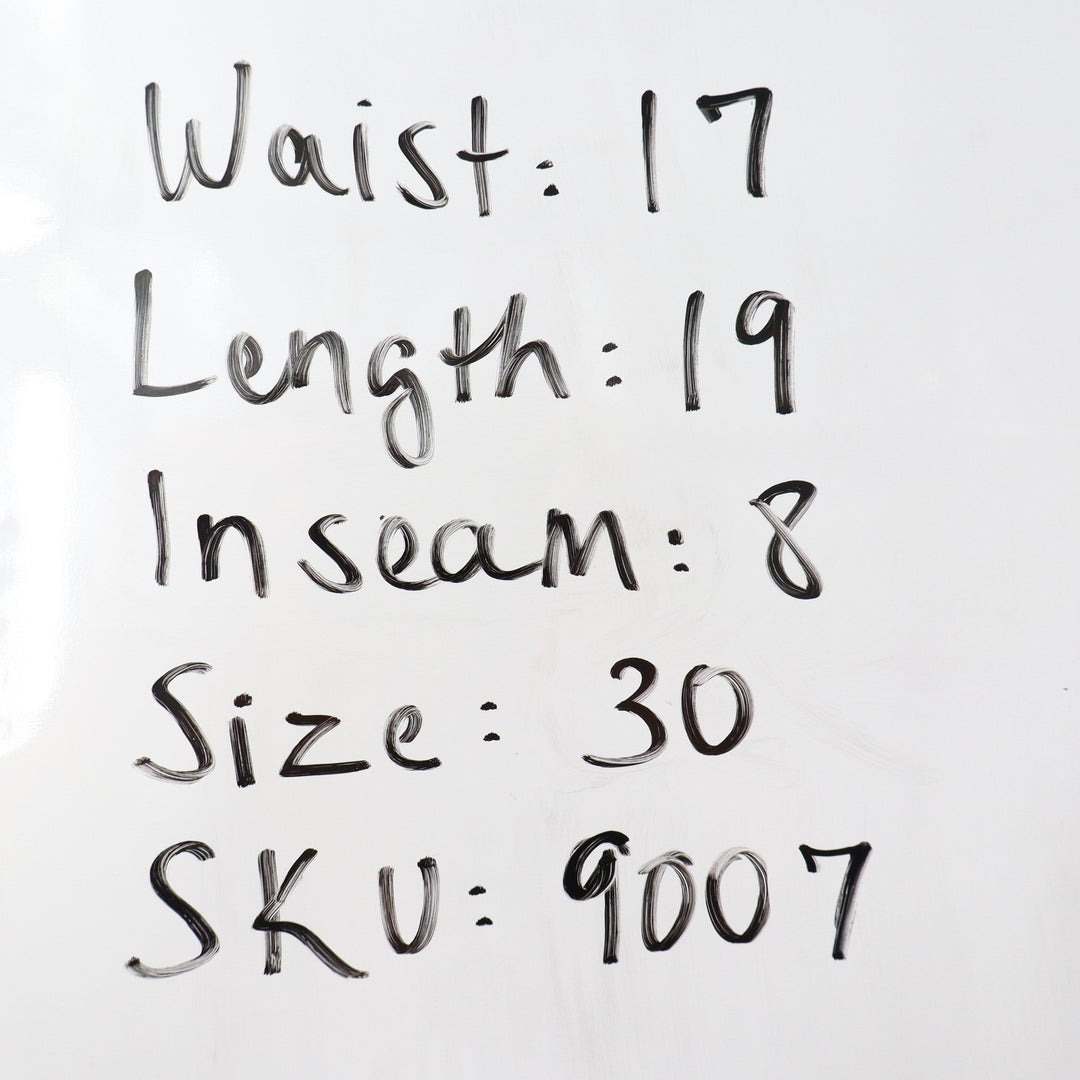 Waist: 17
Length: 19
Inseam: 8
Size: 30
SKU: 9007